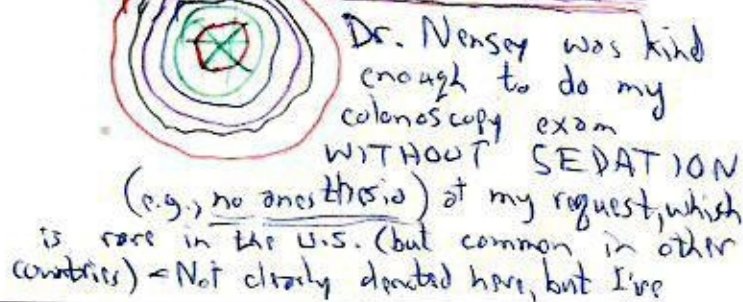 Dr. Nensey was kind
enough to do my
colonoscopy exam
WITHOUT SEDATION
(e.g., no anesthesia) at my request, which
is rare in the U.S. (but common in other
countries) - Not clearly depicted here, but I've